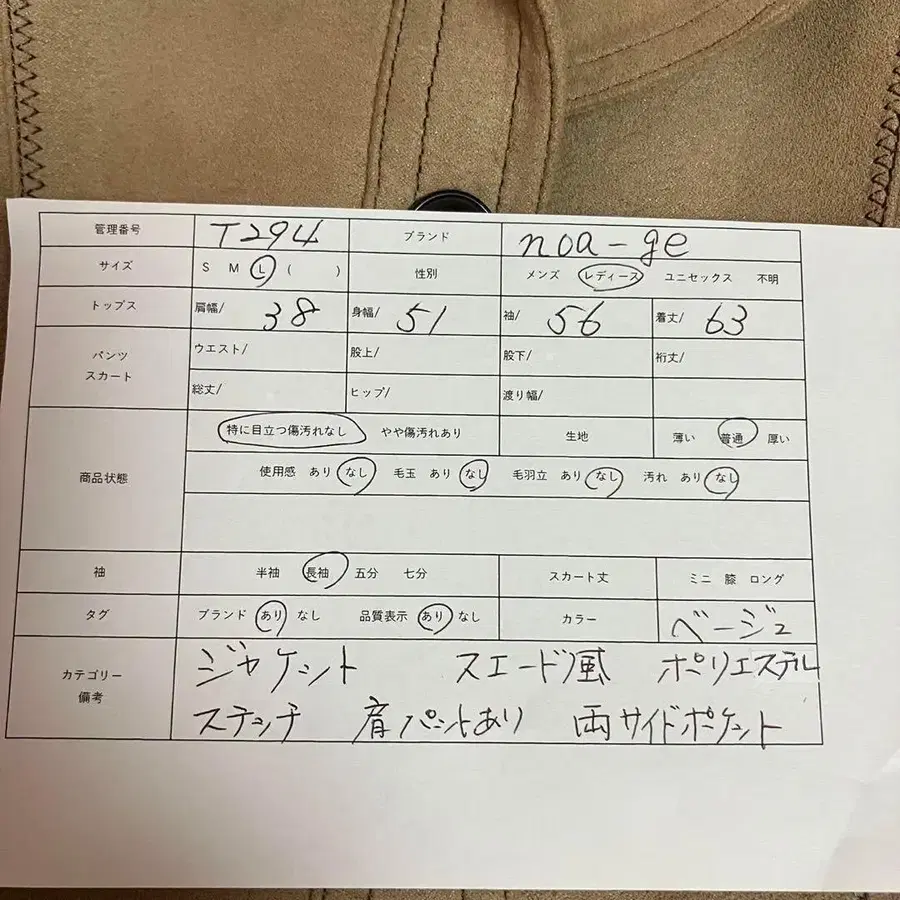 管理番号 T294 ブランド noa-ge
サイズ S M L ( ) 性別 メンズ レディース ユニセックス 不明
トップス 肩幅/ 38 身幅/ 51 袖/ 56 着丈/ 63
パンツ スカート ウエスト/ 股上/ 股下/ 裄丈/
総丈/ ヒップ/ 渡り幅/
商品状態 特に目立つ傷汚れなし やや傷汚れあり 生地 薄い 普通 厚い
使用感 あり なし 毛玉 あり なし 毛羽立 あり なし 汚れ あり なし
袖 半袖 長袖 五分 七分 スカート丈 ミニ 膝 ロング
タグ ブランド あり なし 品質表示 あり なし カラー ベージュ
カテゴリー 備考 ジャケット スエード風 ポリエステル
ステッチ 肩パットあり 両サイドポケット